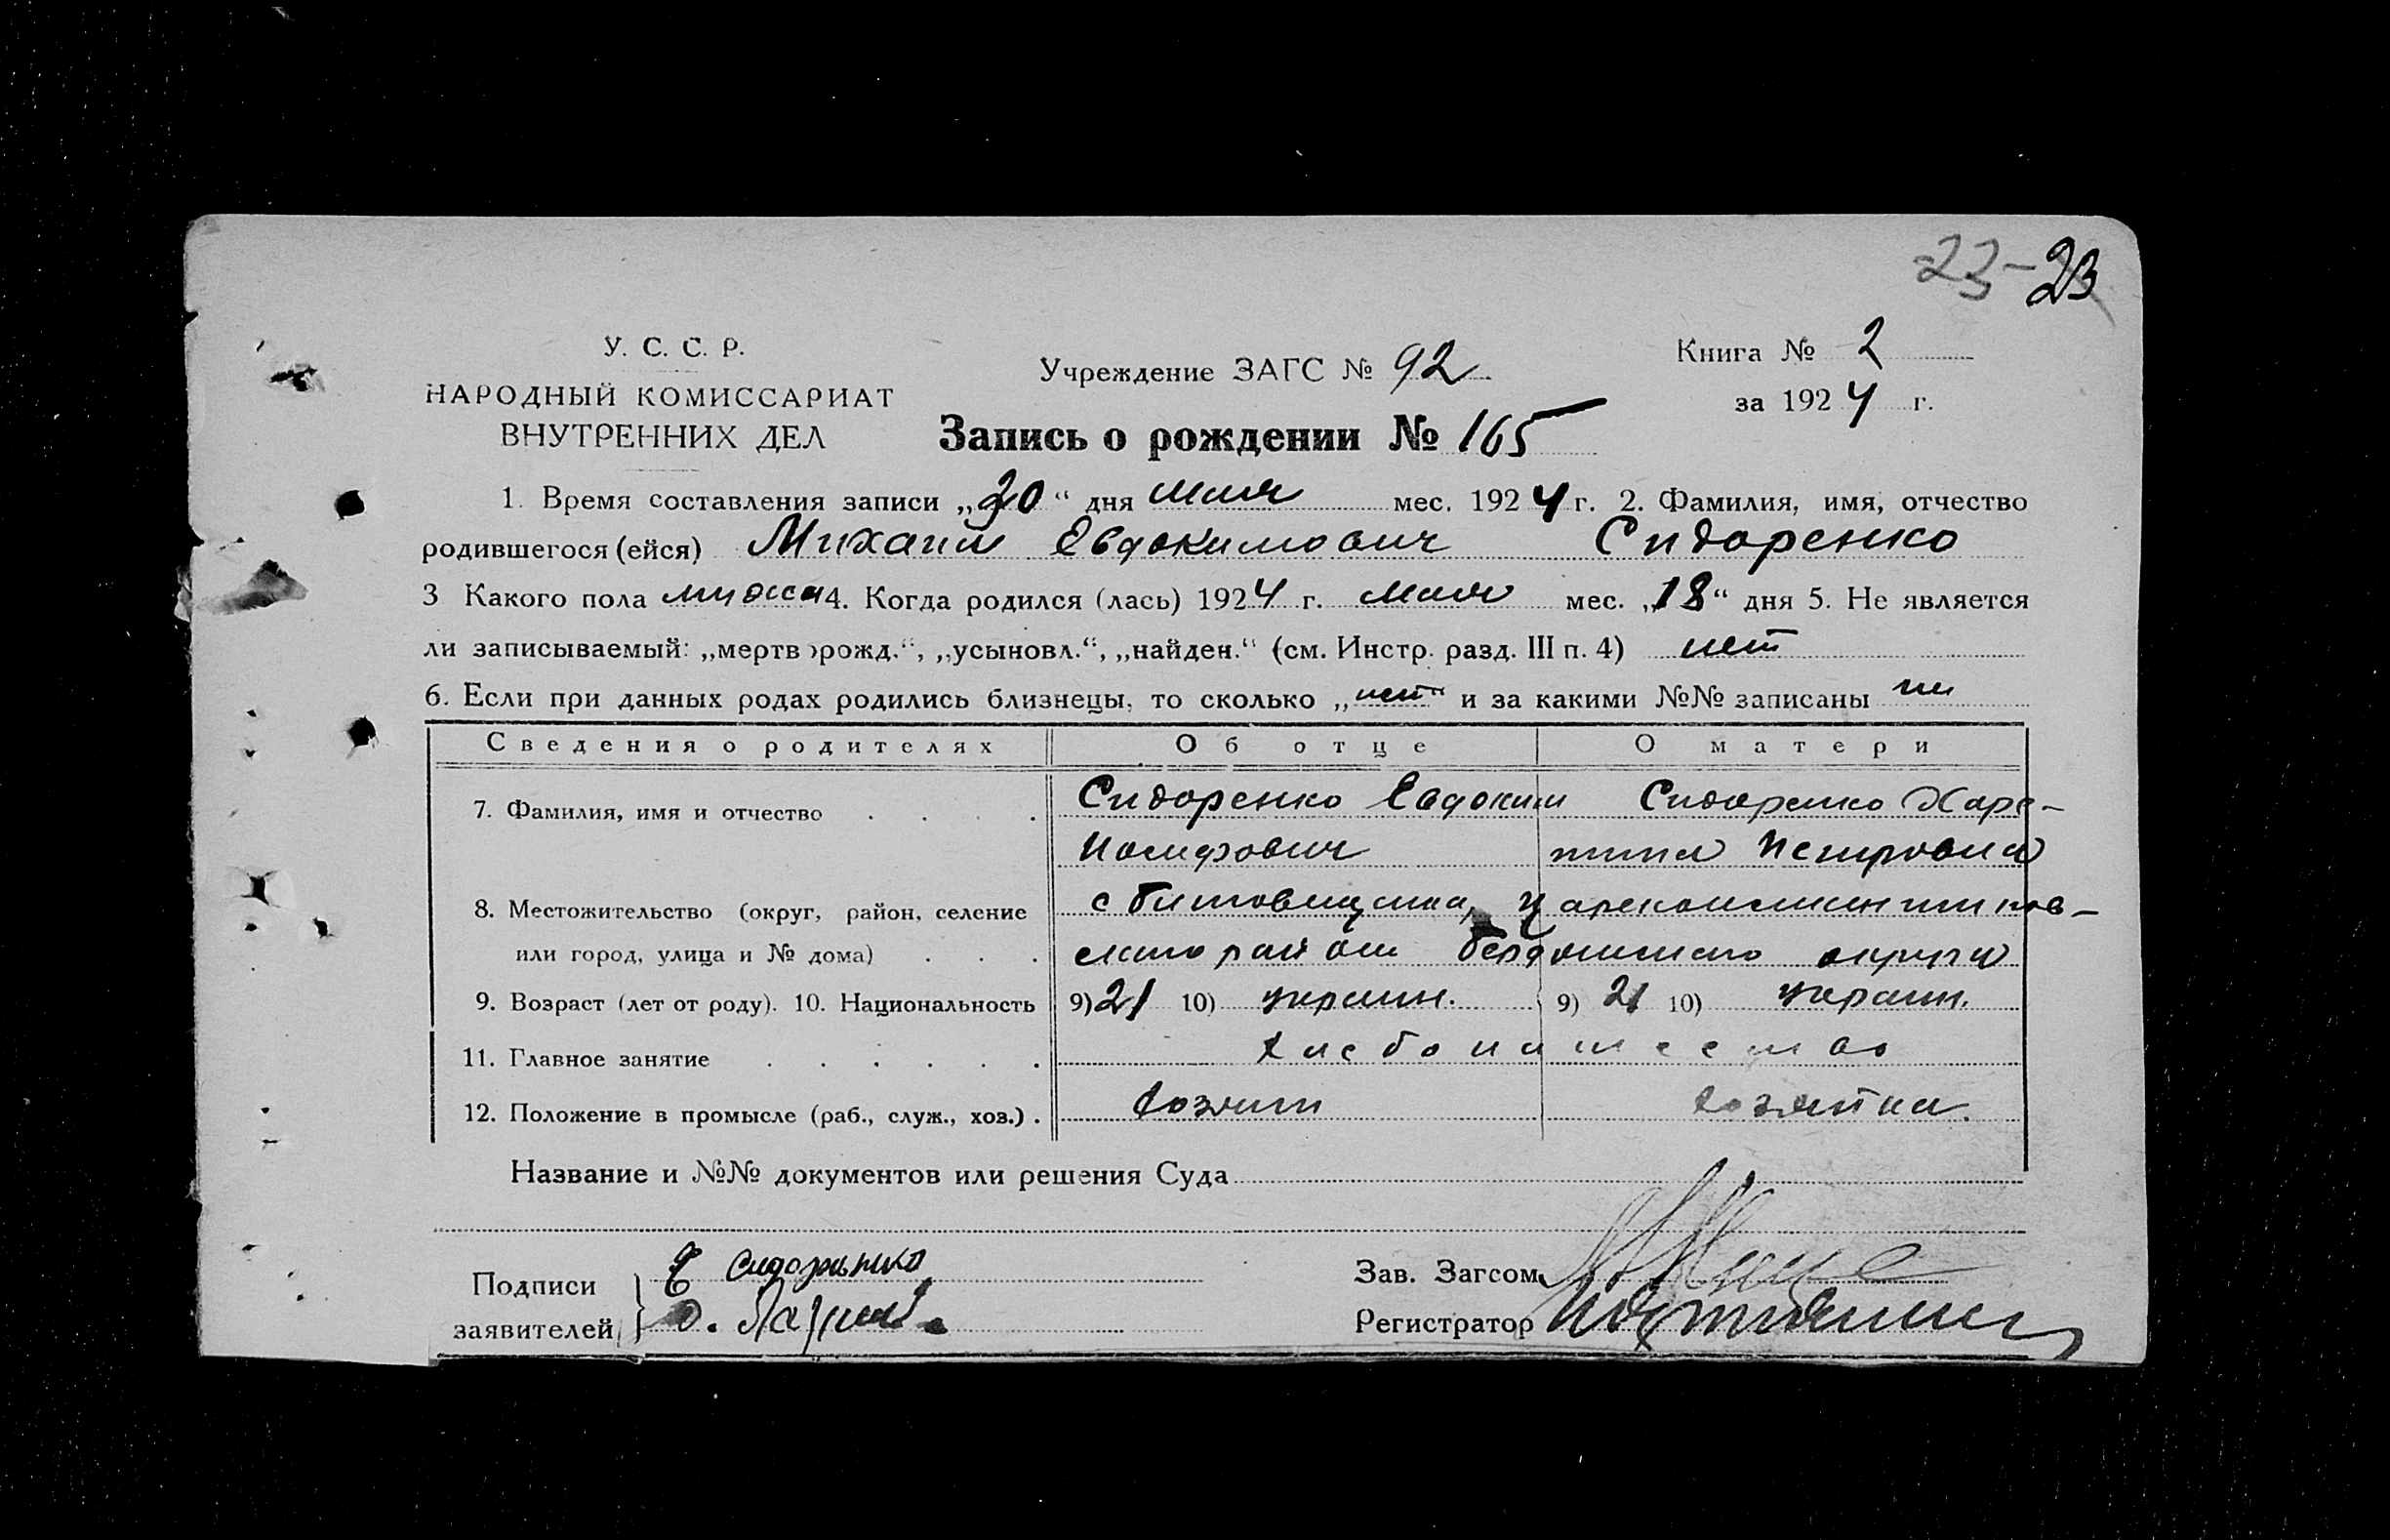 23 - 23
У. С. С. Р.
НАРОДНЫЙ КОМИССАРИАТ
ВНУТРЕННИХ ДЕЛ
Учреждение ЗАГС № 92
Книга № 2
за 1924 г.
Запись о рождении № 165
1. Время составления записи „20“ дня мая мес. 1924 г. 2. Фамилия, имя, отчество
родившегося (ейся) Михаил Евдокимович Сидоренко
3 Какого пола мужск 4. Когда родился (лась) 1924 г. мая мес. „18“ дня 5. Не является
ли записываемый: „мертворожд.“, „усыновл.“, „найден.“ (см. Инстр. разд. III п. 4) нет
6. Если при данных родах родились близнецы, то сколько „нет“ и за какими №№ записаны
Сведения о родителях Об отце О матери
7. Фамилия, имя и отчество Сидоренко Евдоким Сидоренко Харе-
Иосифович тина Петровна
8. Местожительство (округ, район, селение с Цареконстантинов-
или город, улица и № дома) ского района Бердянского округа
9. Возраст (лет от роду). 10. Национальность 9) 21 10) украин. 9) 21 10) украин.
11. Главное занятие хлебопашество
12. Положение в промысле (раб., служ., хоз.) хозяин хозяйка.
Название и №№ документов или решения Суда
Подписи
заявителей
Е Сидоренко
Зав. Загсом
Регистратор